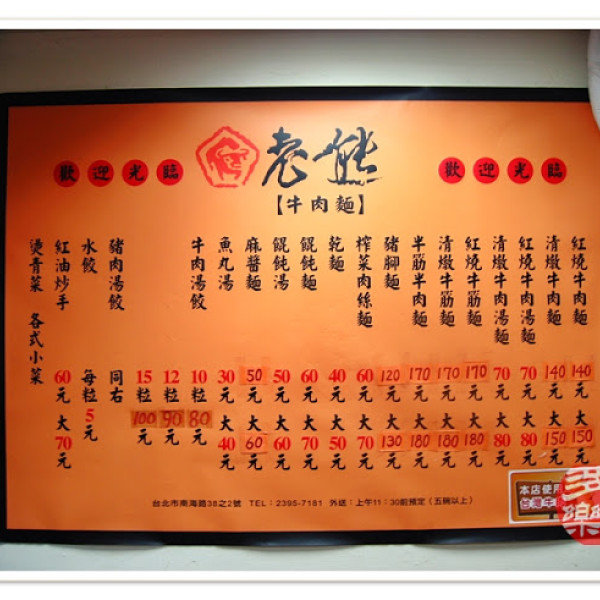 歡迎光臨
老熊
【牛肉麵】
歡迎光臨
紅燒牛肉麵 140元 大150元
清燉牛肉麵 140元 大150元
紅燒牛肉湯麵 70元 大80元
清燉牛肉湯麵 70元 大80元
紅燒牛筋麵 170元 大180元
清燉牛筋麵 170元 大180元
半筋半肉麵 170元 大180元
豬腳麵 120元 大130元
榨菜肉絲麵 60元 大70元
乾麵 40元 大50元
餛飩麵 60元 大70元
餛飩湯 50元 大60元
麻醬麵 50元 大60元
魚丸湯 30元 大40元
牛肉湯餃 10粒80元
12粒90元
15粒100元
豬肉湯餃 同右
水餃 每粒5元
紅油炒手 60元 大70元
燙青菜 各式小菜
台北市南海路38之2號 TEL：2395-7181 外送：上午11：30前預定（五碗以上）
本店使用
台灣牛